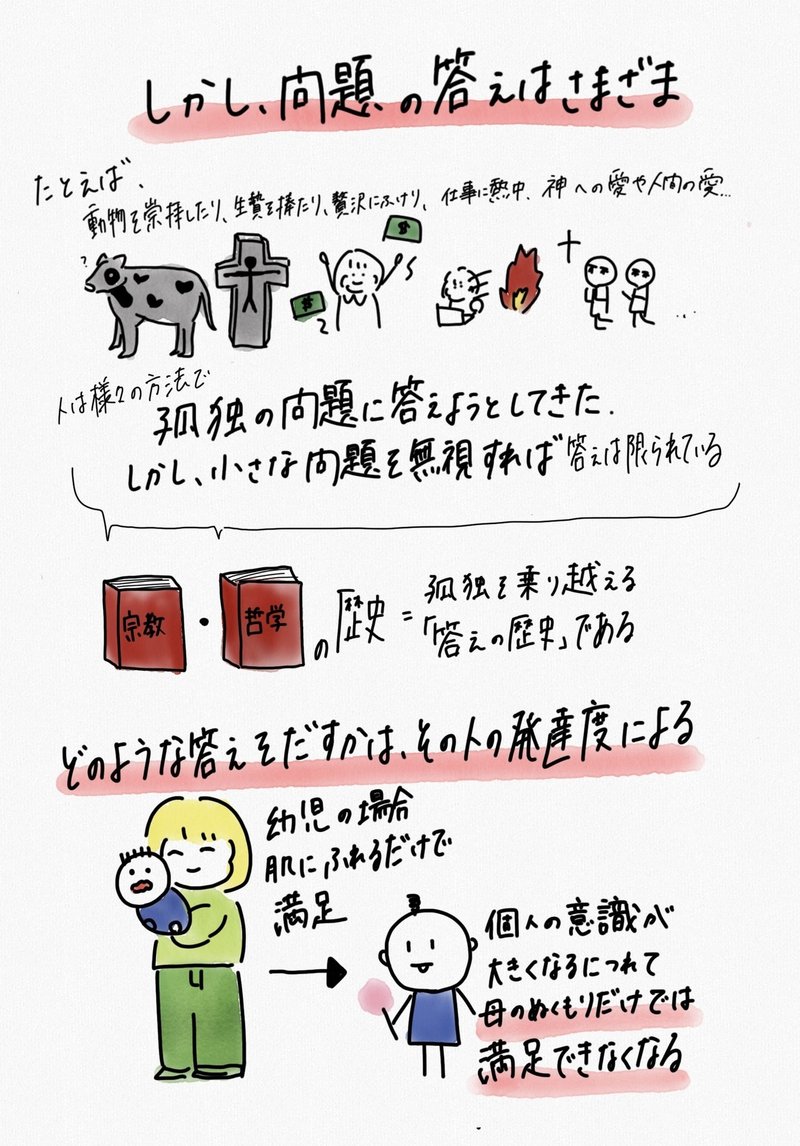 しかし、問題の答えはさまざま
たとえば、
動物を崇拝したり、生贄を捧たり、贅沢にふけり、仕事に熱中、神への愛や人間の愛…
?
$
$
人は様々の方法で
孤独の問題に答えようとしてきた.
しかし、小さな問題を無視すれば答えは限られている
宗教・哲学の歴史=孤独を乗り越える
「答えの歴史」である
どのような答えをだすかは、その人の発達度による
幼児の場合
肌にふれるだけで
満足
個人の意識が
大きくなるにつれて
母のぬくもりだけでは
満足できなくなる